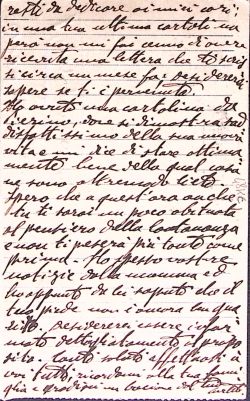 rasti da dedicare ai miei cari;
in una tua ultima cartolina
però non mi fai cenno di aver
ricevuta una lettera che ti scris
si circa un mese fa; desidererei
sapere se ti è pervenuta.
Ho avuto una cartolina da
si dimostra sod
disfattissimo della sua nuova
vita e mi dice di stare ottima
mente bene della qual cosa
ne sono oltremodo lieto.
Spero che a quest'ora anche
tu ti sarai un poco abituata
al pensiero della lontananza
e non ti peserà più tanto come
prima. Ho spesso vostre
notizie dalla mamma ed
ho appunto da lei saputo che il
tuo piede non è ancora
desidererei essere infor
mato dettagliatamente in propo
sito. Tanti saluti affettuosi a
voi tutti, ricordami alla tua fami
glia e gradisci un bacione dal tuo